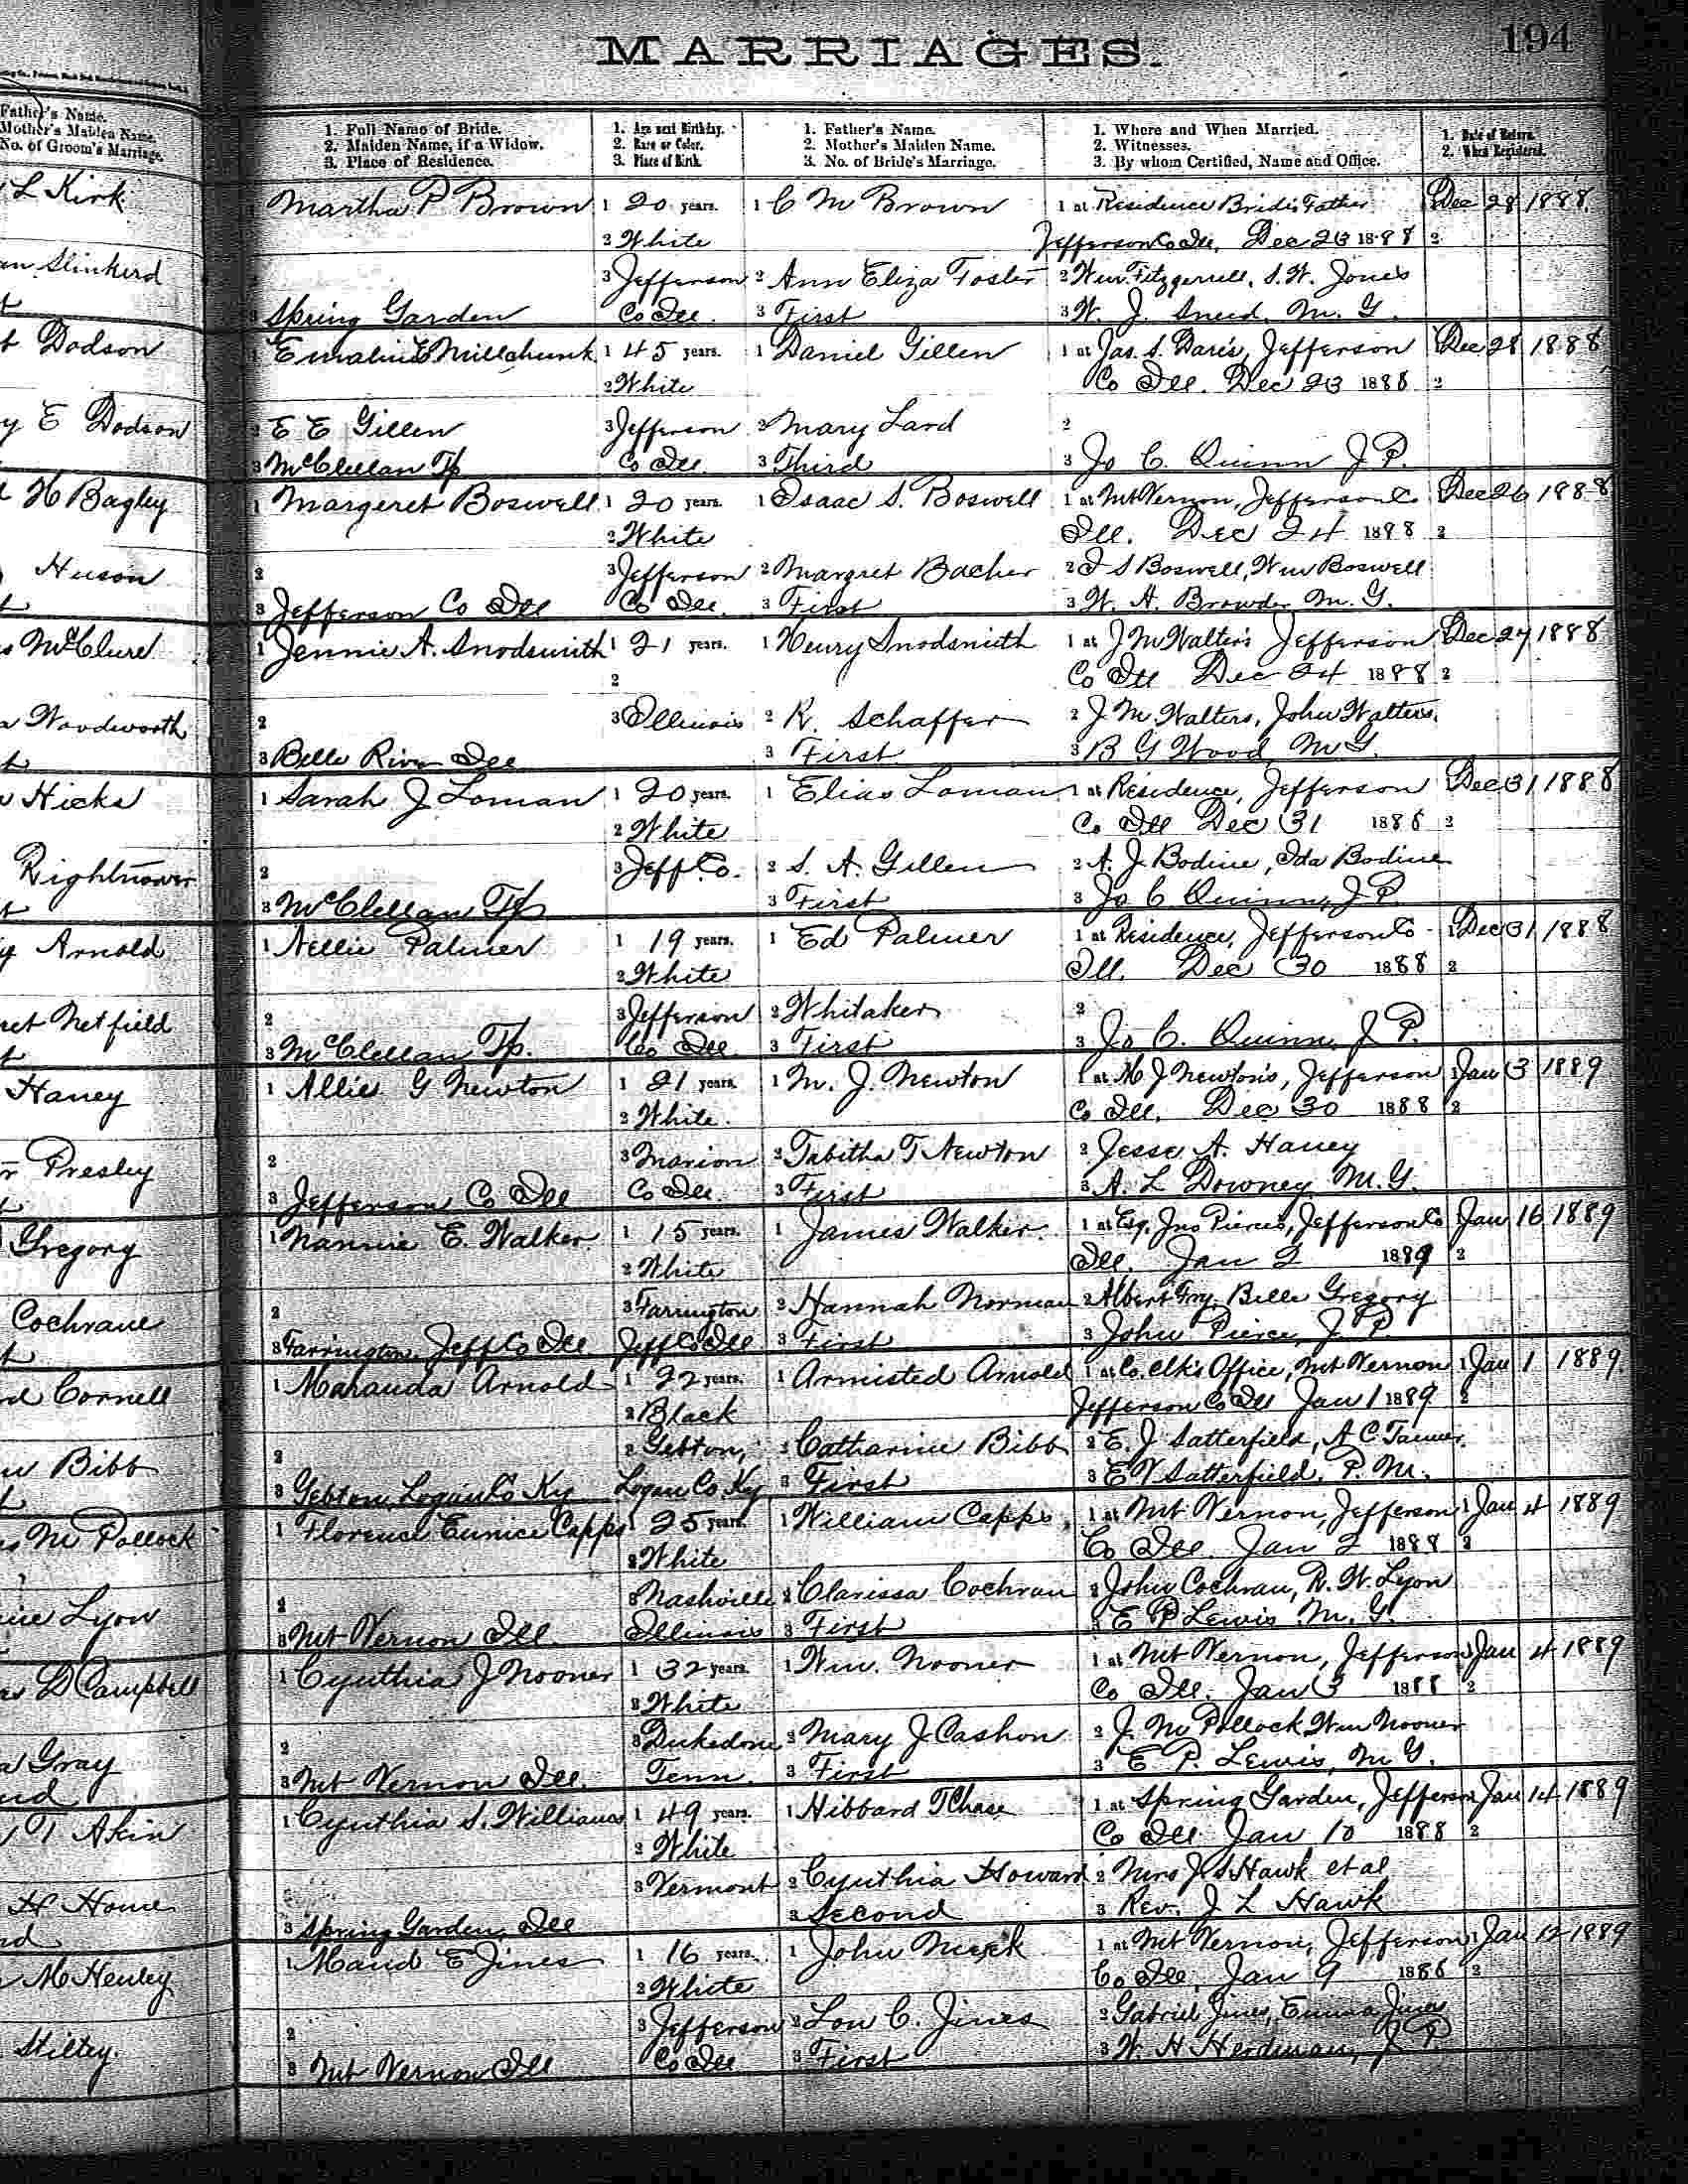 MARRIAGES.
194
Father's Name.
Mother's Maiden Name.
No. of Groom's Marriage.
1. Full Name of Bride.
2. Maiden Name, if a Widow.
3. Place of Residence.
1. Age next Birthday.
2. Race or Color.
3. Place of Birth.
1. Father's Name.
2. Mother's Maiden Name.
3. No. of Bride's Marriage.
1. Where and When Married.
2. Witnesses.
3. By whom Certified, Name and Office.
1. Date of Return.
2. When Registered.
L Kirk
1 Martha P Brown 1 20 years. 1 C M Brown 1 at Residence Bride's Father Dec 28 1888
2 White Jefferson Co Ill, Dec 23 1888 2
Slinkerd 3 Jefferson 2 Ann Eliza Foster 2 Wm Fitzgerrell, S. W. Jones
3 Spring Garden Co Ill. 3 First 3 W. J. Sneed, M. G.
Dodson 1 1 45 years. 1 Daniel Gillen 1 at Jas. S. Dare's, Jefferson Dec 28 1888
2 White Co Ill. Dec 23 1888 2
E Dodson 2 E E Gillen 3 Jefferson 2 Mary Lard 2
3 McClellan Tp Co Ill. 3 Third 3 Jo C. Quinn J P.
H Bagley 1 Margaret Boswell 1 20 years. 1 Isaac S. Boswell 1 at Mt Vernon, Jefferson Co Dec 26 1888
2 White Ill. Dec 24 1888 2
Huson 2 3 Jefferson 2 Margret Bacher 2 I S Boswell, Wm Boswell
3 Jefferson Co Ill Co Ill. 3 First 3 W. A. Browder M. G.
McClure 1 Jennie A. Snodsmith 1 21 years. 1 Henry Snodsmith 1 at J M Walter's Jefferson Dec 27 1888
2 Co Ill Dec 24 1888 2
Woodworth 2 3 Illinois 2 R. Schaffer 2 J. M Walters, John Walters
3 Belle River Ill 3 First 3 B G Wood, M G.
Hicks 1 Sarah J Loman 1 20 years. 1 Elias Loman 1 at Residence, Jefferson Dec 31 1888
2 White Co Ill Dec 31 1888 2
Rightnower 2 3 Jeff Co. 2 S. A. Gillen 2 A. J. Bodine, Ida Bodine
3 McClellan Tp 3 First 3 Jo C Quinn, J P.
Arnold 1 Nellie Palmer 1 19 years. 1 Ed Palmer 1 at Residence, Jefferson Co 1 Dec 31 1888
2 White Ill. Dec 30 1888 2
Netfield 2 3 Jefferson 2 Whitaker 2
3 McClellan Tp. Co Ill. 3 First 3 Jo C. Quinn, J P.
Haney 1 Allie G Newton 1 21 years. 1 M. J. Newton 1 at M J Newton's, Jefferson 1 Jan 3 1889
2 White. Co Ill. Dec 30 1888 2
Presley 2 3 Marion 2 Tabitha T Newton 2 Jesse A. Haney
3 Jefferson Co Ill Co Ill. 3 First 3 A. L Downey M. G.
Gregory 1 Nannie E. Walker 1 15 years. 1 James Walker. 1 at Esq. Jno Pierce's, Jefferson Co Jan 16 1889
2 White Ill. Jan 2 1889 2
Cochrane 2 3 Farrington 2 Hannah Norman 2 Albert Fry, Belle Gregory
3 Farrington, Jeff Co Ill Jeff Co Ill 3 First 3 John Pierce, J P.
Cornell 1 Maranda Arnold 1 22 years. 1 Armisted Arnold 1 at Co. Clk's Office, Mt Vernon 1 Jan 1 1889
2 Black Jefferson Co Ill Jan 1 1889 2
Bibb 2 Gebton, 2 Catharine Bibb 2 E. J Satterfield, A C Tanner
3 Gebton, Logan Co Ky Logan Co Ky 3 First 3 E V Satterfield, P. M.
M Pollock 1 Florence Eunice Capps 1 25 years. 1 William Capps 1 at Mt Vernon, Jefferson 1 Jan 4 1889
2 White Co Ill. Jan 2 1888 2
Lyon 2 3 Nashville 2 Clarissa Cochran 2 John Cochran, R. W. Lyon
3 Mt Vernon Ill. Illinois 3 First 3 E P Lewis M. G.
D Campbell 1 Cynthia J Nooner 1 32 years. 1 Wm. Nooner 1 at Mt Vernon, Jefferson 1 Jan 4 1889
2 White Co Ill. Jan 3 1888 2
Gray 2 3 Dukedom 2 Mary J Cashon 2 J. M Pollock, Wm Nooner
3 Mt Vernon Ill. Tenn. 3 First 3 E. P. Lewis, M G.
T Akin 1 Cynthia S. Williams 1 49 years. 1 Hibbard T Chase 1 at Spring Garden, Jefferson Jan 14 1889
2 White Co Ill Jan 10 1888 2
H Howe 3 Vermont 2 Cynthia Howard 2 Mrs J S Hawk et al
3 Spring Garden, Ill 3 Second 3 Rev. J L Hawk
M Henley 1 Maud E Jines 1 16 years. 1 John 1 at Mt Vernon, Jefferson 1 Jan 12 1889
2 White Co Ill, Jan 9 1888 2
Stiltey. 2 3 Jefferson 2 Lou C. Jines 2 Gabriel Jines, Emma Jines
3 Mt Vernon Ill Co Ill 3 First 3 W. H Herdman, J P.